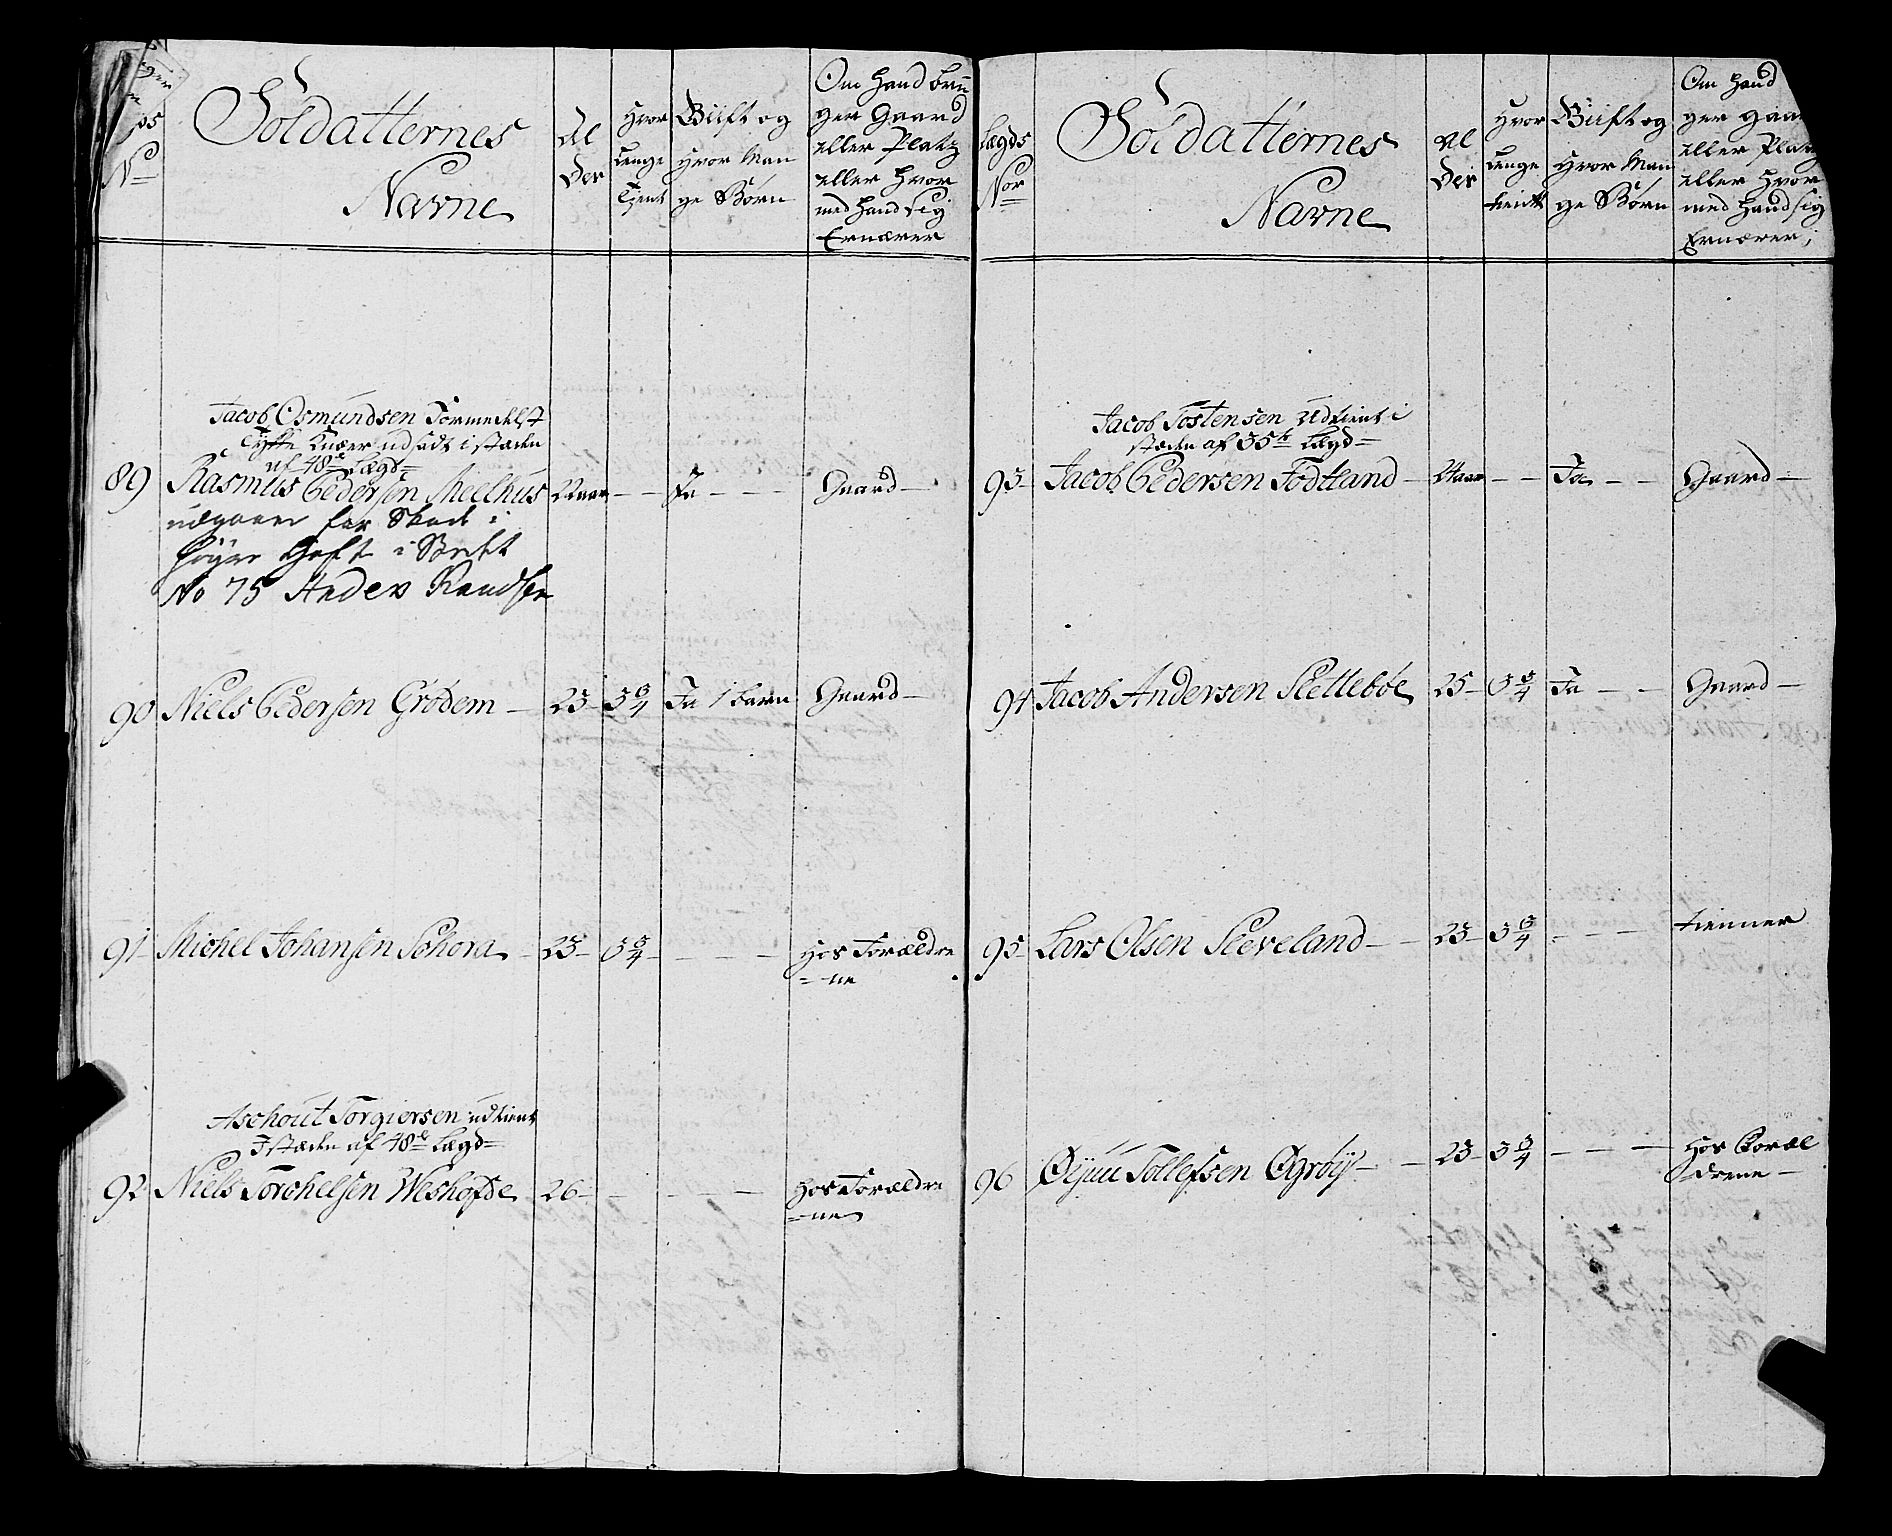 No
Soldatternes
Navne
Al
der
Hvor
Lenge
Tjent
Giift og
Hvor Man
ge Børn
Om Hand bru
ger Gaard
eller Platz
eller Hvor
med Hand sig
Ernærer
Jacob Osmundsen Formedelst
Knæer udsadt i stæden
af 48de Lægd
89 Rasmus Pedersen Meelhus 22 aar — — Ja — — — Gaard —
i
No 75 Anders Knudsen
90 Niels Pedersen Grødem — 23 — 3 3/4 Ja 1 barn Gaard —
91 Michel Johansen Schora — 23 — 3 3/4 — — — — Hos Forældre
= ne
Aschout Torgiersen udtient
I stæden af 48de Lægd =
92 Niels Torchelsen Weshofde 26 — — — — — Hos Forældre
= ne
Lægds
Nor
Soldatternes
Navne
Al
der
Hvor
Lenge
tient
Giift og
Hvor Man
ge Børn
Om Hand
ger Gaar
eller Platz
eller Hvor
med Hand sig
Ernærer;
Jacob Tostensen Udtient i
stæden af 35te Lægd =
93 Jacob Pedersen Todtland — 24 aar — — Ja — — Gaard —
94 Jacob Andersen Slettebøe 25 — 3 3/4 Ja — — Gaard —
95 Lars Olsen Sleveland — — 23 — 3 3/4 — — — tienner
96 Øijuu Tollefsen Øgrøÿ — — 23 — 3 3/4 — — — Hos Foræl
= drene —